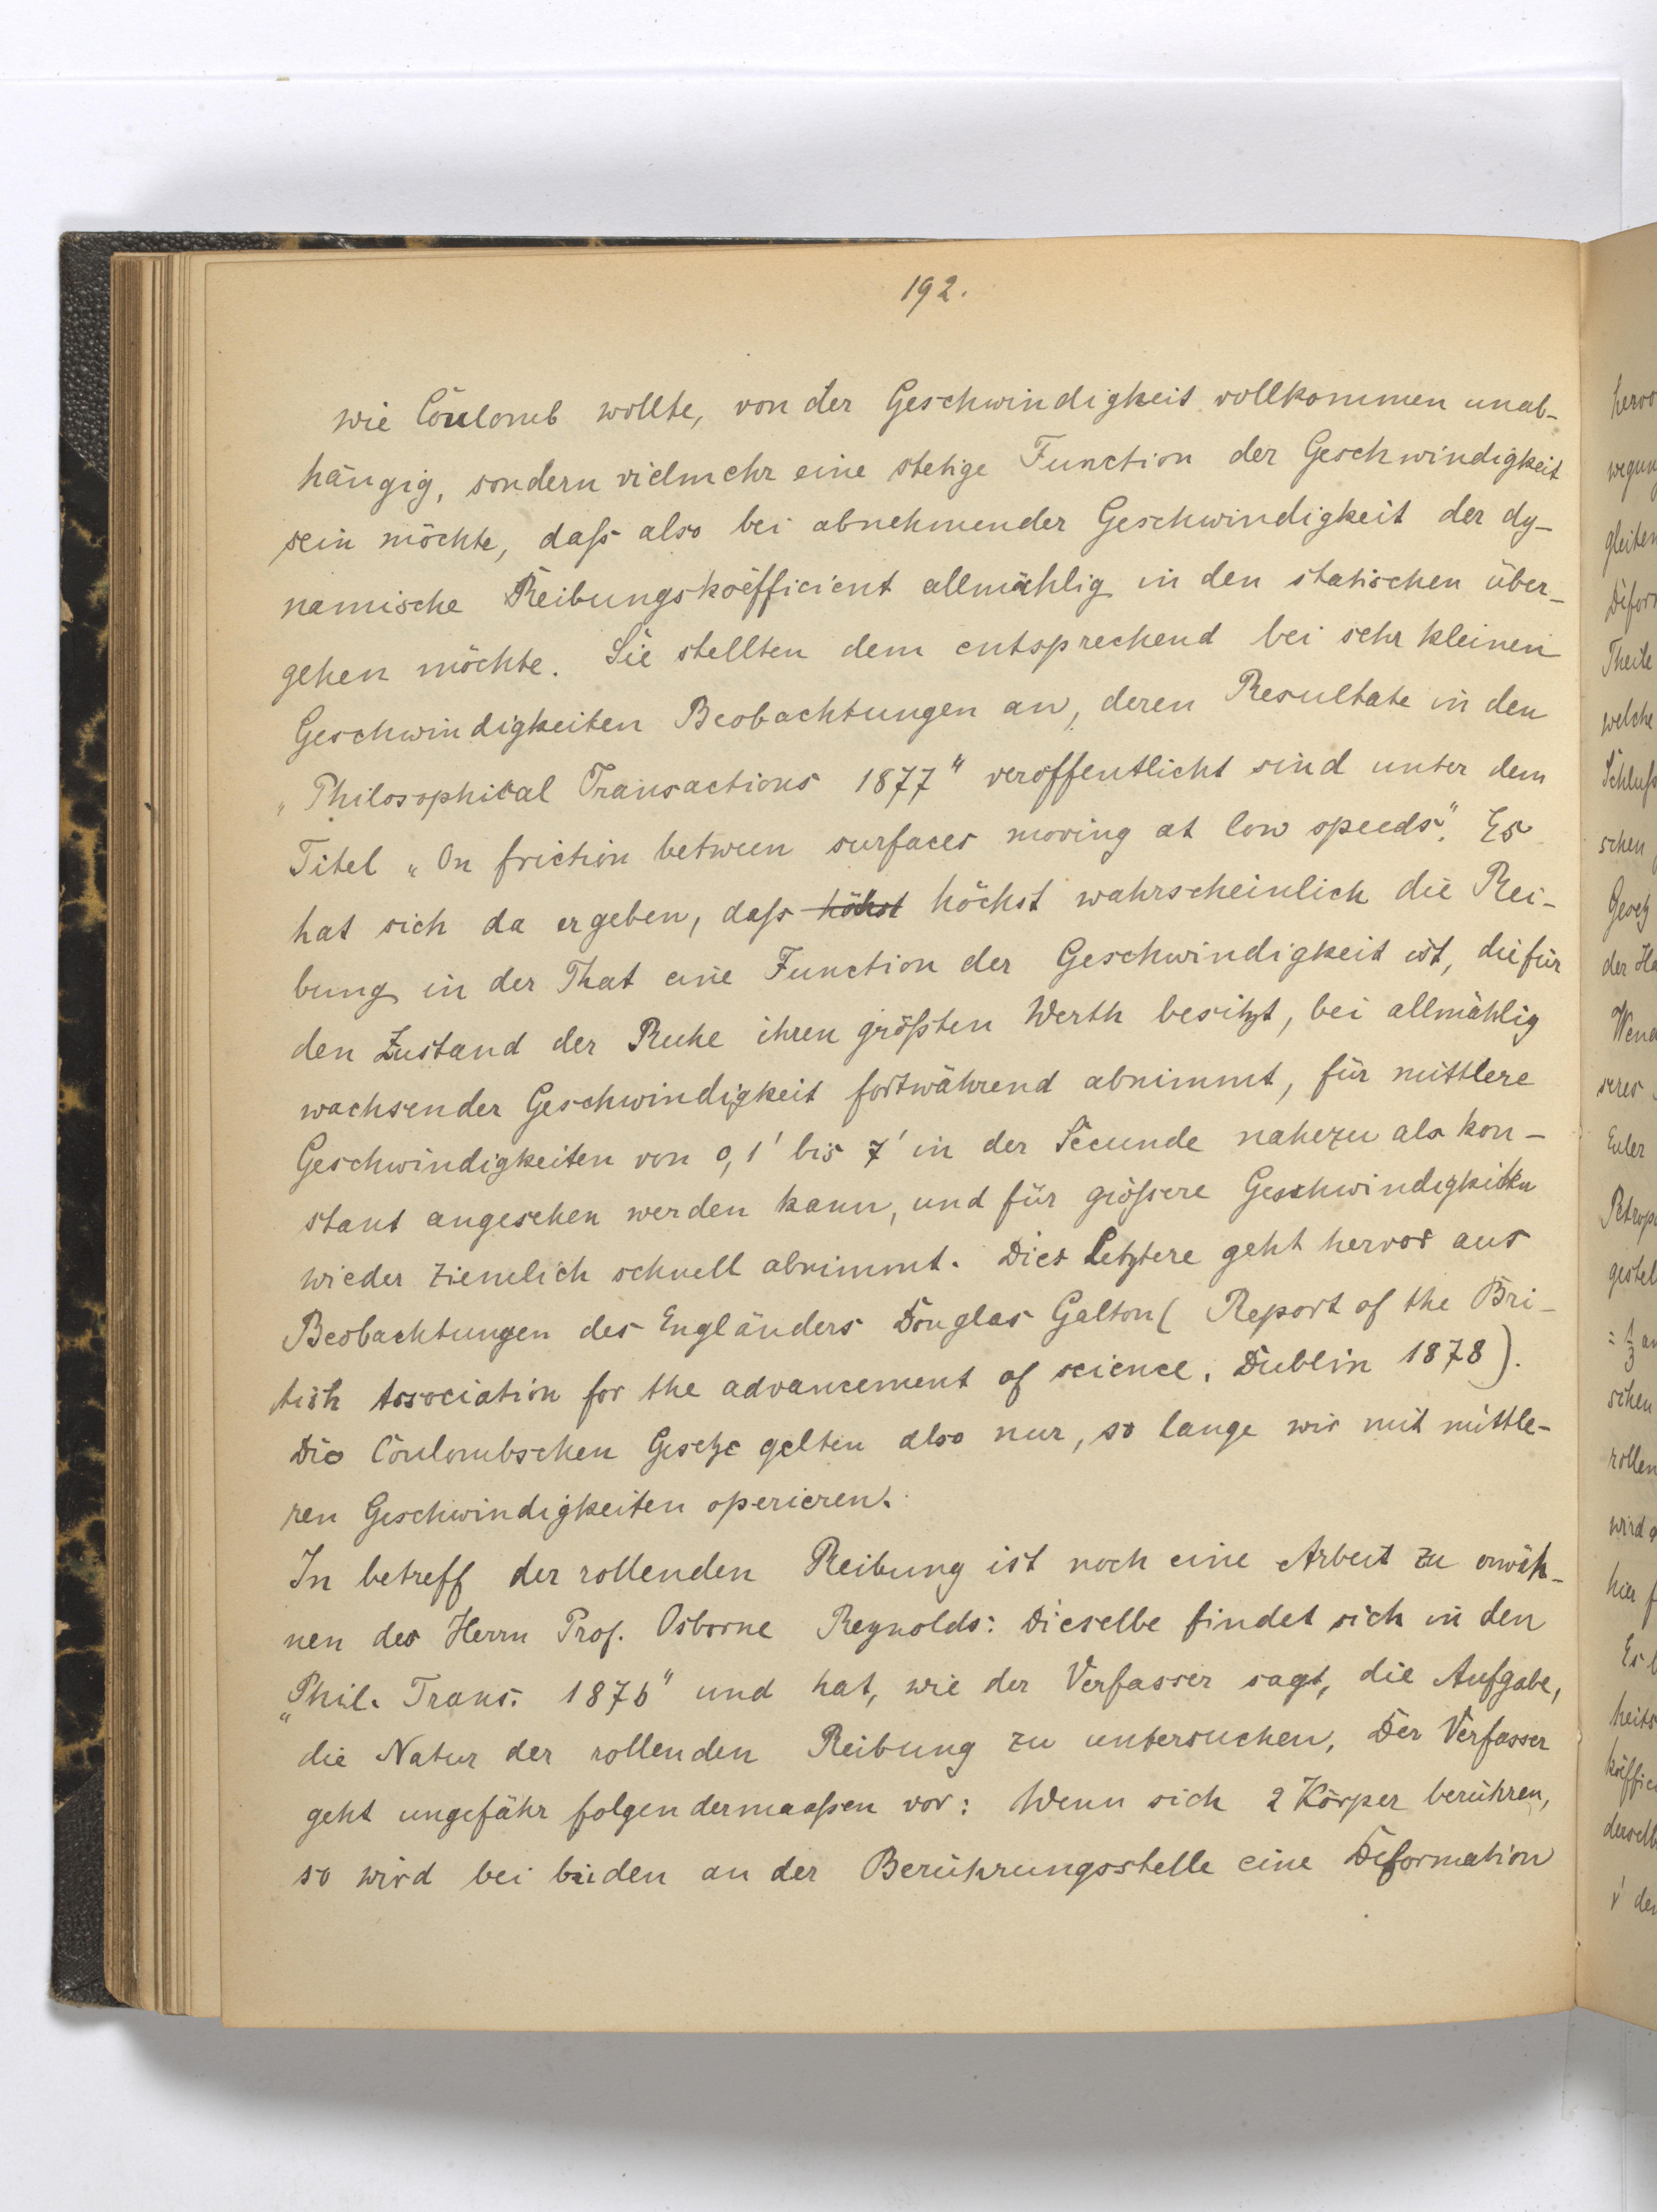 192.
wie Coulomb wollte, von der Geschwindigkeit vollkommen unab-
hängig, sondern vielmehr eine stetige Function der Geschwindigkeit
sein möchte, daſs also bei abnehmender Geschwindigkeit der dy-
namische Reibungskoëfficient allmählig in den statischen über-
gehen möchte. Sie stellten dem entsprechend bei sehr kleinen
Geschwindigkeiten Beobachtungen an, deren Resultate in den
„Philosophical Transactions 1877“ veröffentlicht sind unter dem
Titel „On friction between surfaces moving at low speeds“. Es
hat sich da ergeben, daſs höhst höchst wahrscheinlich die Rei-
bung in der That eine Function der Geschwindigkeit ist, die für
den Zustand der Ruhe ihren gröſsten Werth besitzt, bei allmählig
wachsender Geschwindigkeit fortwährend abnimmt, für mittlere
Geschwindigkeiten von 0,1' bis 7' in der Secunde nahezu als kon-
stant angesehen werden kann, und für gröſsere Geschwindigkeiten
wieder ziemlich schnell abnimmt. Dies Letztere geht hervor aus
Beobachtungen des Engländers Douglas Galton ( Report of the Bri-
tish Association for the advancement of science. Dublin 1878).
Die Coulombschen Gesetze gelten also nur, so lange wir mit mittle-
ren Geschwindigkeiten operieren.
In betreff der rollenden Reibung ist noch eine Arbeit zu erwäh-
nen des Herrn Prof. Osborne Reynolds: Dieselbe findet sich in den
„Phil. Trans. 1876“ und hat, wie der Verfasser sagt, die Aufgabe,
die Natur der rollenden Reibung zu untersuchen. Der Verfasser
geht ungefähr folgendermaaſsen vor: Wenn sich 2 Körper berühren,
so wird bei beiden an der Berührungsstelle eine Deformation